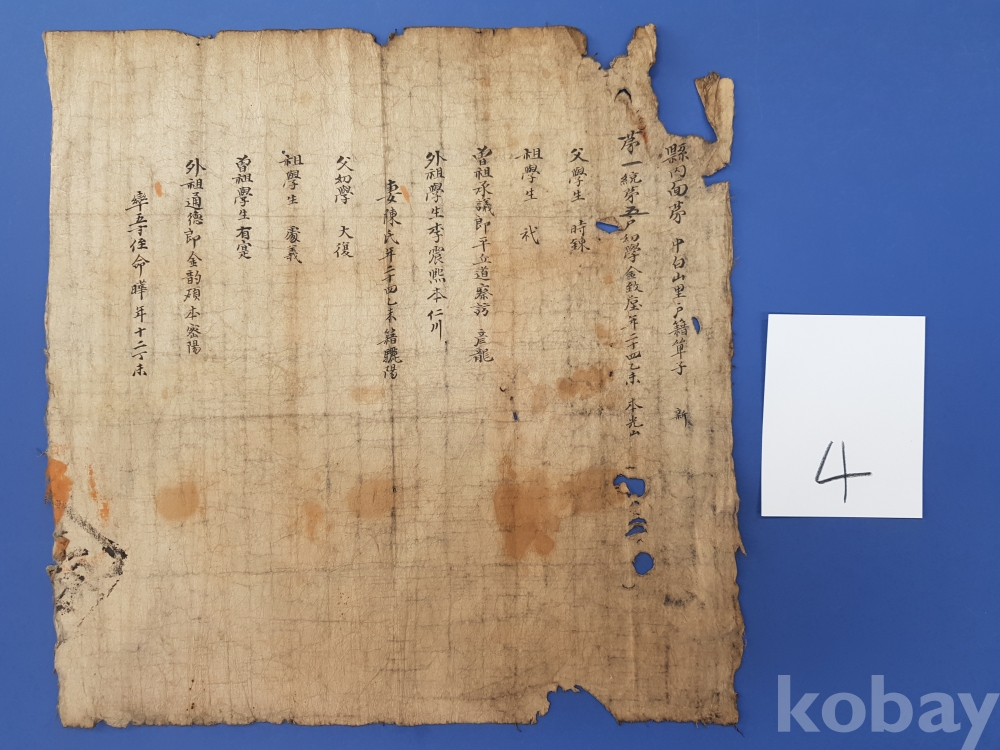 縣內面第 中白山里戶籍單子 新
第一統第五戶幼學金致 年二十四乙未 本光山
父學生 時鍊
祖學生
曾祖承議郎平丘道察訪 彦龍
外祖學生李震熙本仁川
妻陳氏年二十四乙未籍驪陽
父幼學 大復
祖學生 處義
曾祖學生 有寔
外祖通德郎金 碩本密陽
率 五寸侄命曄年十二丁未
4
kobay